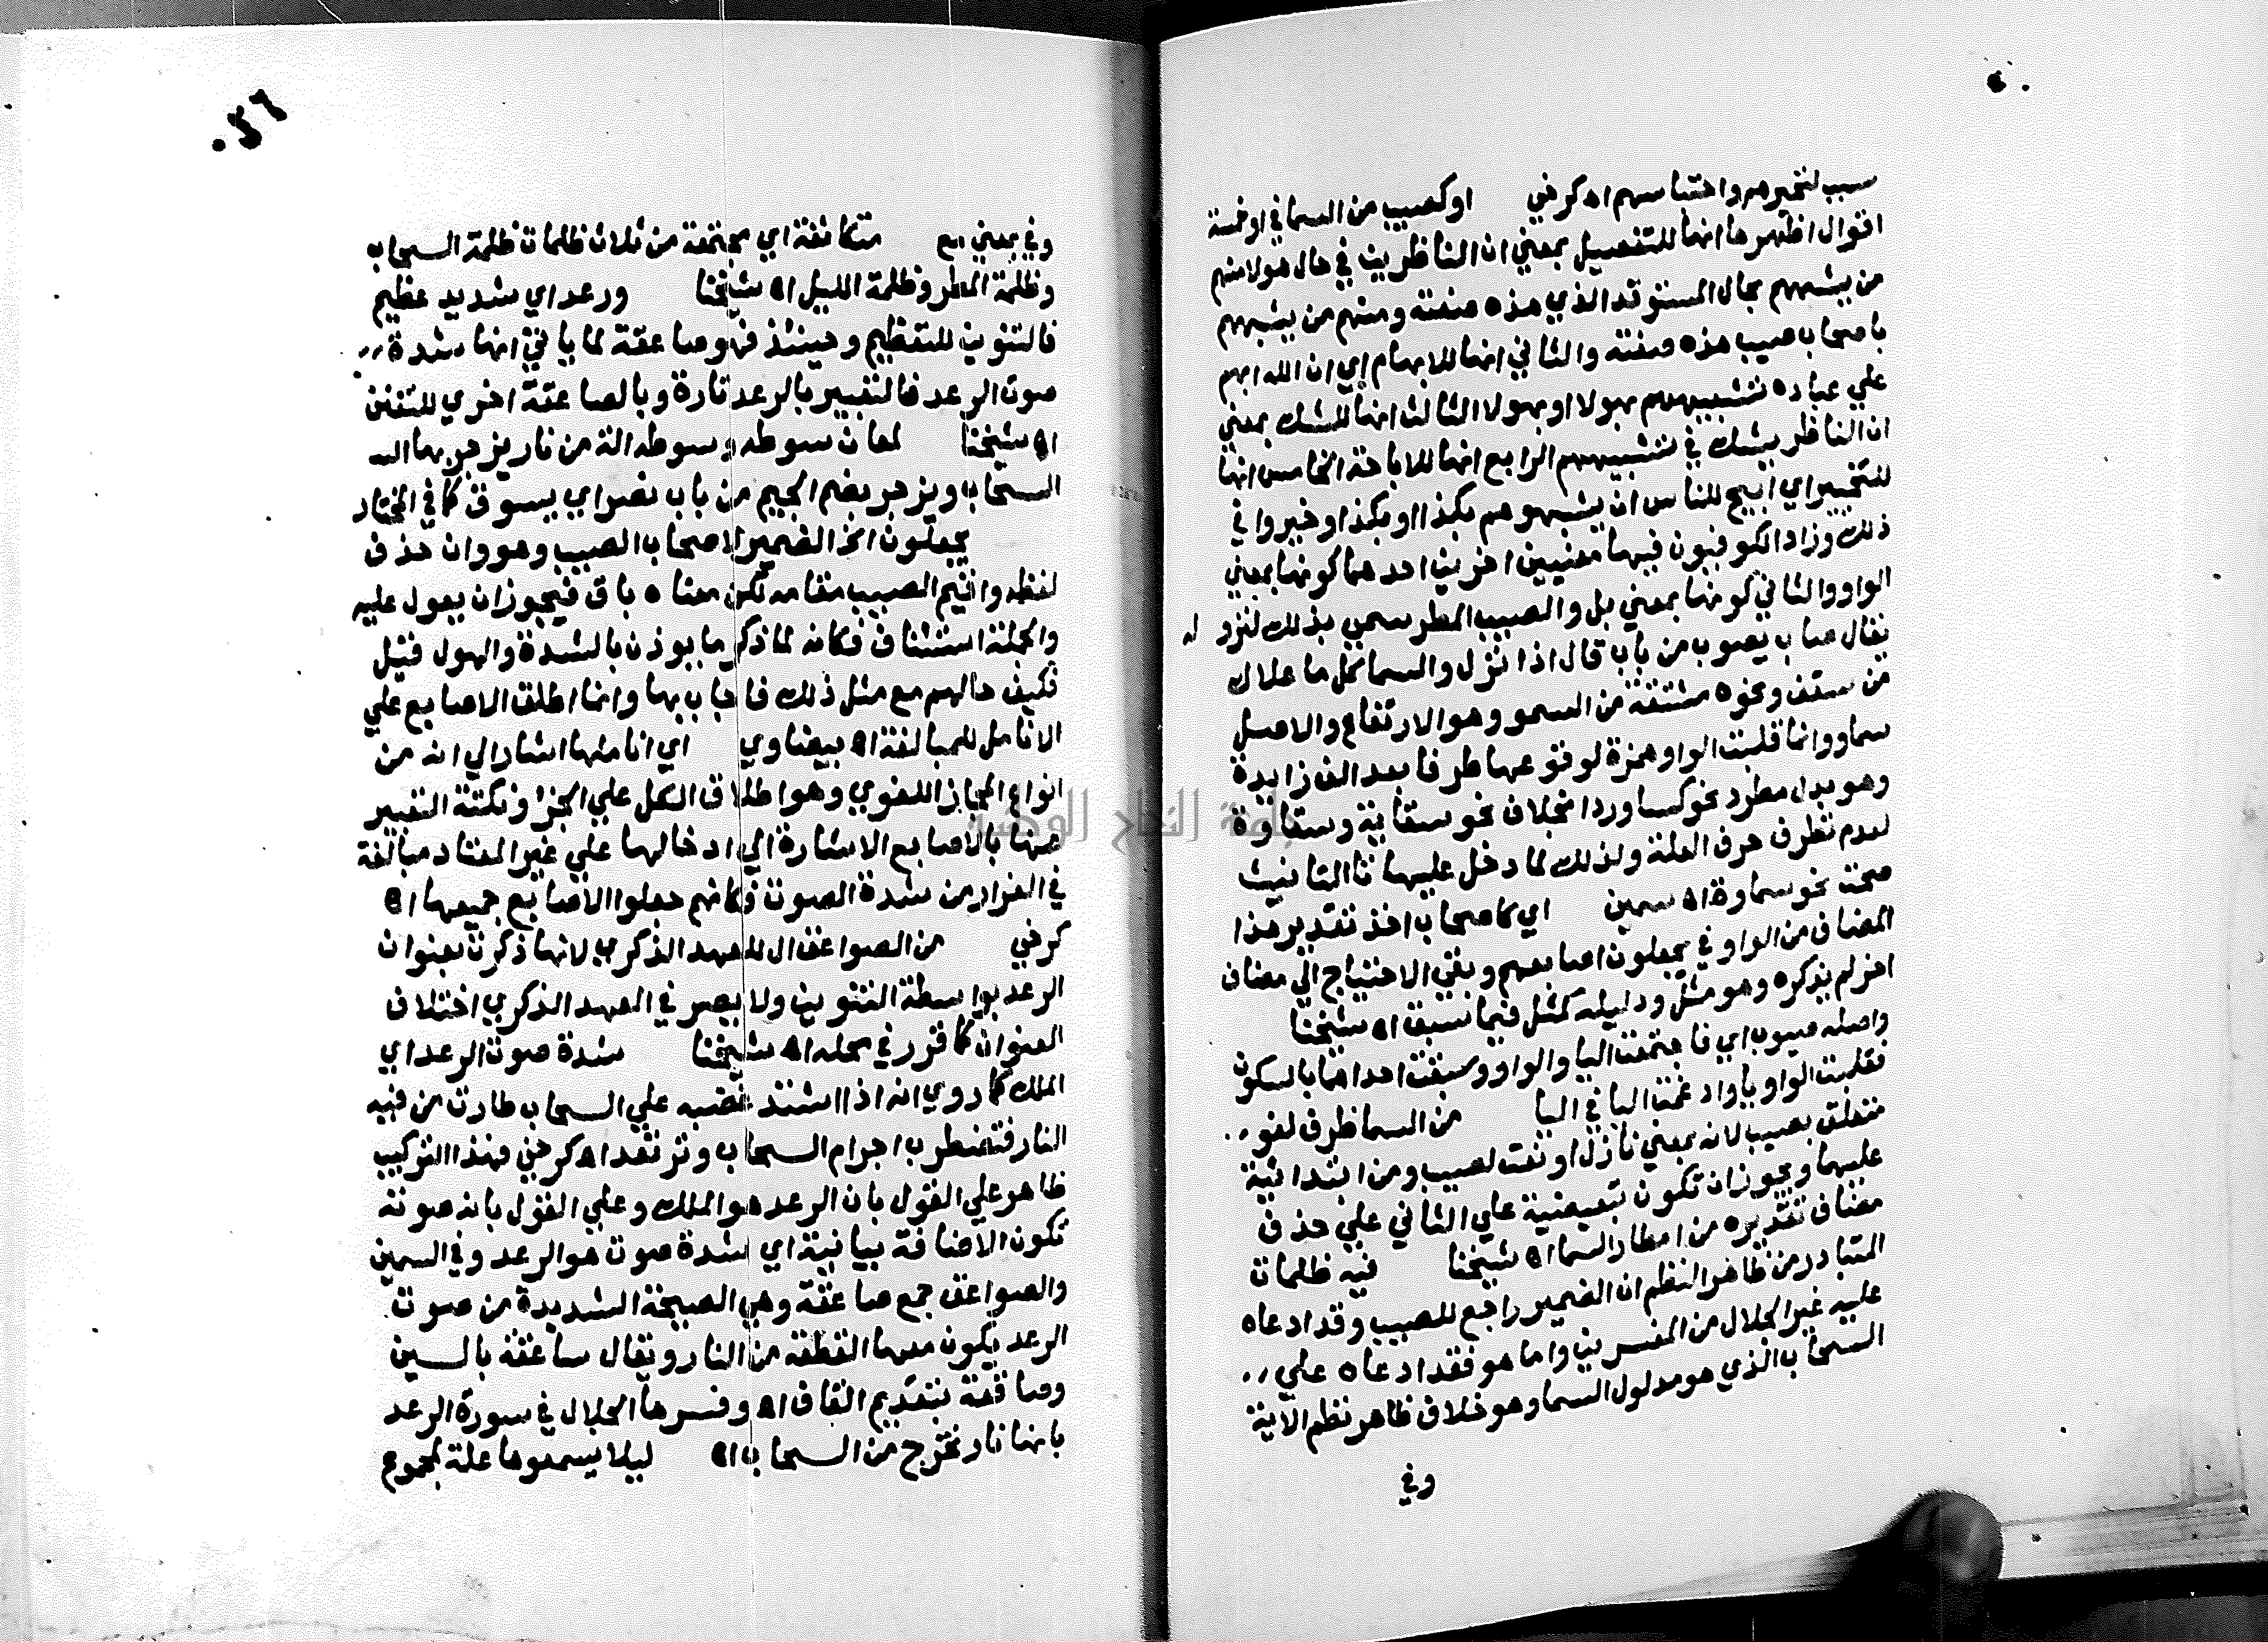 سبب لتحيرهم واحتباسهم اه كرخي او كصيب من السما في او خمسة
اقوال اظهرها انها للتفصيل بمعني ان الناظرين في حال هولا منهم
من يشبههم بحال المستوقد الذي هذه صفته ومنهم من يشبههم
باصحاب صيب هذه صفته والثاني انها للابهام اي ان الله ابهم
علي عباده تشبيههم بهولا او بهولا الثالث انها للشك بمعني
ان الناظر يشك في تشبيههم الرابع انها للاباحة الخامس انها
للتخيير اي ابيح للناس ان يشبهوهم بكذا او بكذا او خيروا في
ذلك وزاد الكوفيون فيها معنيين اخرين احدهما كونها بمعني
الواو والثاني كونها بمعني بل والصيب المطر سمي بذلك لنزو له
يقال صاب يصوب من باب قال اذا نزل والسما كل ما علاك
من سقف ونحوه مشتقة من السمو وهو الارتفاع والاصل
سماو وانما قلبت الواو همزة لوقوعها طرفا بعد الف زايدة
وهو بدل مطرد نحو كسا وردا بخلاف نحو سقاية وسقاوة
لعدم تطرف حرف العلة ولذلك لما دخل عليها تا التانيث
صحت نحو سماوة اه سمين اي كاصحاب اخذ تقدير هذا
المضاف من الواو في يجعلون اصابعهم وبقي الاحتياج الي مضاف
اخر لم يذكره وهو مثل ودليله كمثل فيما سبق اه شيخنا
واصله صيوب اي فاجتمعت اليا والواو وسبقت احداهما بالسكون
فقلبت الواو يا وادغمت اليا في اليا من السما ظرف لغو
متعلق بصيب لانه بمعني نازل او نعت لصيب ومن ابتدائية
عليهما ويجوز ان تكون تبعيضية علي الثاني علي حذف
مضاف تقديره من امطار السما اه شيخنا فيه ظلمات
المتبادر من ظاهر النظم ان الضمير راجع للصيب وقد ادعاه
عليه غير الجلال من المفسرين واما هو فقد ادعاه علي
السحاب الذي هو مدلول السما وهو خلاف ظاهر نظم الاية
وفي
٠٢٦
وفي بمعني مع متكاثفة اي مجتمعة من ثلاث ظلمات ظلمة السحاب
وظلمة المطر وظلمة الليل اه شيخنا ورعد اي شديد عظيم
فالتنوين للتعظيم وحينئذ فهو صاعقة لما ياتي انها شدة
صوت الرعد فالتعبير بالرعد تارة وبالصاعقة اخري للتفنن
اه شيخنا لمعان سوطه وسوطه الة من نار يزجر بها
السحاب ويزجر بضم الجيم من باب نصر اي يسوق كما في المختار
يجعلون الخ الضمير لاصحاب الصيب وهو وان حذف
لفظه واقيم الصيب مقامه لكن معناه باق فيجوز ان يعول عليه
والجملة استئناف فكانه لما ذكر ما يوذن بالشدة والهول قيل
فكيف حالهم مع مثل ذلك فاجاب بها وانما اطلق الاصابع علي
الانامل للمبالغة اه بيضاوي اي اناملها اشار الي انه من
انواع المجاز اللغوي وهو اطلاق الكل علي الجزا ونكتة التعبير
عنها بالاصابع الاشارة الي ادخالها علي غير المعتاد مبالغة
في الفرار من شدة الصوت فكانهم جعلوا الاصابع جميعها اه
كرخي من الصواعق ال للعهد الذكري لانها ذكرت بعنوان
الرعد بواسطة التنوين ولا يضر في العهد الذكري اختلاف
العنوان كما قرر في محله اه شيخنا شدة صوت الرعد اي
الملك كما روي انه اذا اشتد غضبه علي السحاب طارت من فيه
النار فتضطرب اجرام السحاب وترتعد اه كرخي فهذا التركيب
ظاهر علي القول بان الرعد هو الملك وعلي القول بانه صوته
تكون الاضافة بيانية اي شدة صوت هو الرعد وفي السمين
والصواعق جمع صاعقة وهي الصيحة الشديدة من صوت
الرعد يكون معها القطعة من النار ويقال ساعقة بالسين
وصاقعة بتقديم القاف اه وفسرها الجلال في سورة الرعد
بانها نار تخرج من السحاب اه ليلا يسمعوها علة لمجموع
جامعة النجاح الوطنية